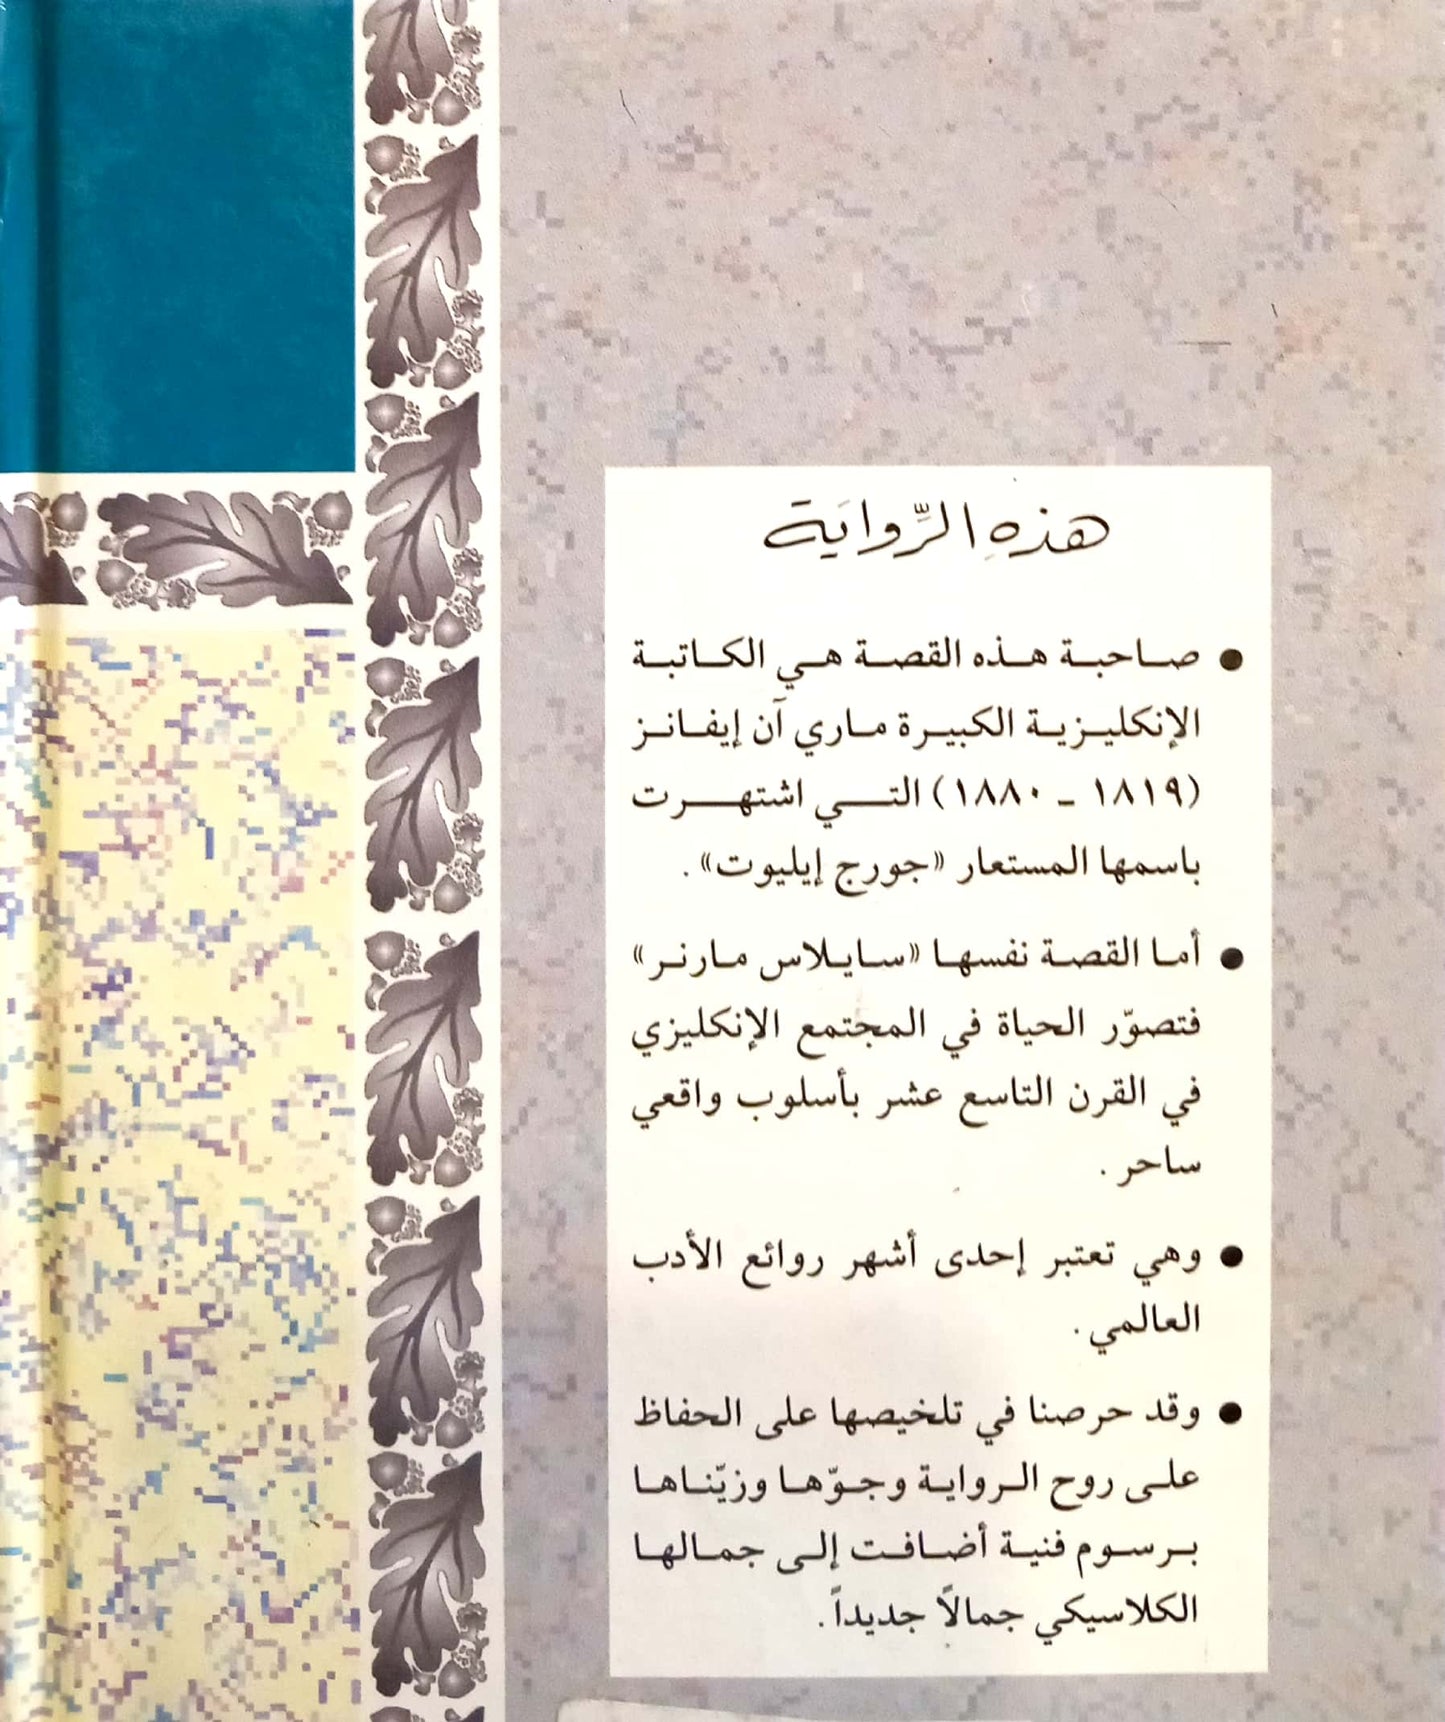 هذهِ الرِّوايَة
● صاحبة هذه القصة هي الكاتبة
الإنكليزية الكبيرة ماري آن إيفانز
(١٨١٩ - ١٨٨٠) التي اشتهرت
باسمها المستعار «جورج إيليوت».
● أما القصة نفسها «سايلاس مارنر»
فتصوّر الحياة في المجتمع الإنكليزي
في القرن التاسع عشر بأسلوب واقعي
ساحر.
● وهي تعتبر إحدى أشهر روائع الأدب
العالمي.
● وقد حرصنا في تلخيصها على الحفاظ
على روح الرواية وجوّها وزيّناها
برسوم فنية أضافت إلى جمالها
الكلاسيكي جمالاً جديداً.